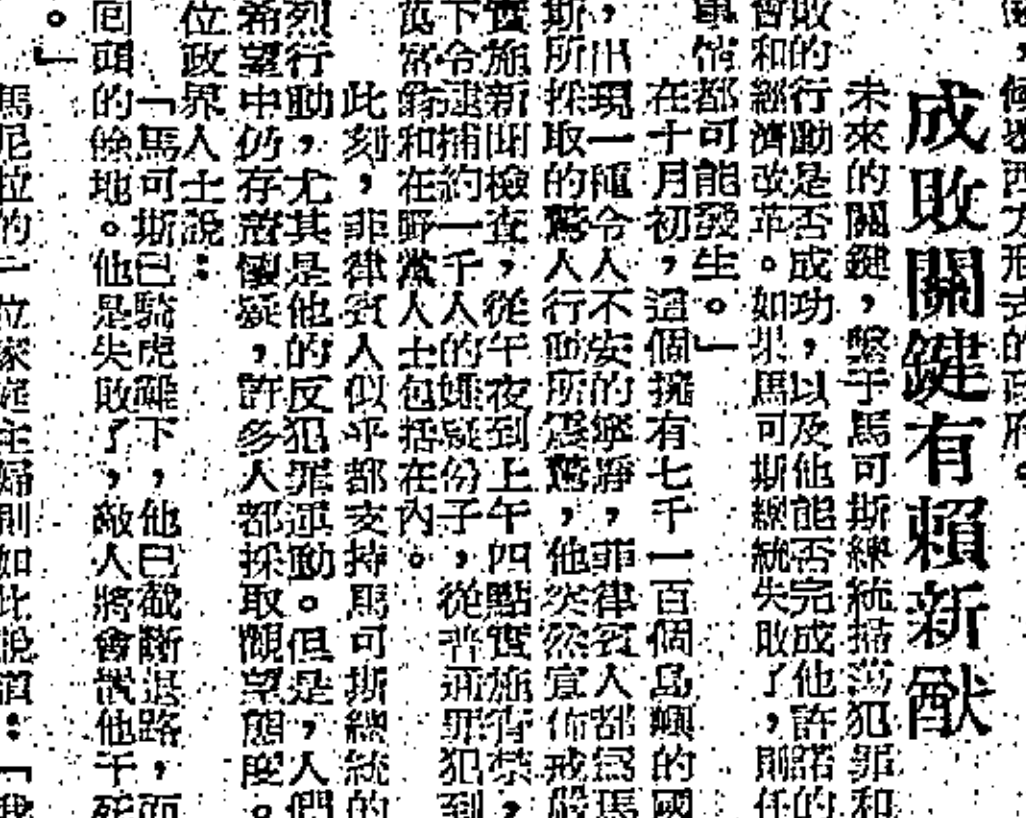 西方形式的政府。
成敗關鍵有賴新猷
未來的關鍵，繫于馬可斯總統掃蕩犯罪和
敗的行動是否成功，以及他能否完成他許諾的
會和經濟改革。如果馬可斯總統失敗了，則任
事情都可能發生。」
在十月初，這個擁有七千一百個島嶼的國
，出現一種令人不安的寧靜，菲律賓人都爲馬
斯所採取的驚人行動所震驚，他突然宣佈戒嚴
實施新聞檢查，從午夜到上午四點實施宵禁，
下令逮捕約一千人的嫌疑份子，從普通罪犯到
和在野黨人士包括在內。
此刻，菲律賓人似乎都支持馬可斯總統的
烈行動，尤其是他的反犯罪運動。但是，人們
希望中仍存着懷疑，許多人都採取觀望態度。
位政界人士說：
「馬可斯已騎虎難下，他已截斷退路，而
回頭的餘地。他是失敗了，敵人將會置他于死
。」
馬尼拉的一位家庭主婦則如此說道：「我